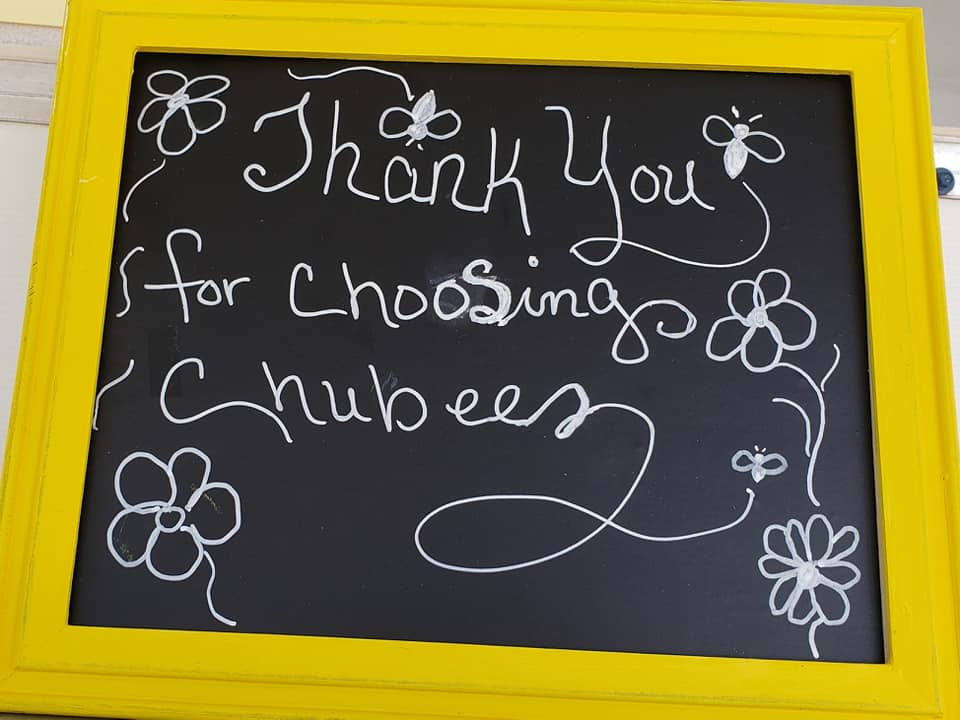 Thank You
for choosing
Chubees